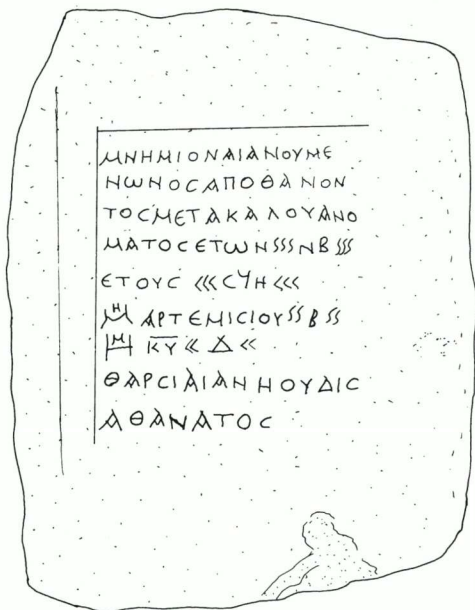 ΜΝΗΜΙΟΝΑΙΑΝΟΥΜΕ
ΗΩΗΟCΑΠΟΘΑΝΟΝ
ΤΟCΜΕΤΑΚΑΛΟΥΑΝΟ
ΜΑΤΟCΕΤΩΝSSSΝΒSSS
ΕΤΟΥC <<<CϤΗ<<<
ΜΗ ΑΡΤΕΜΙCΙΟΥSSΒSS
ΗΜ Κ̅Υ̅ << Δ <<
ΘΑΡCΙΑΙΑΝΗΟΥΔΙC
ΑΘΑΝΑΤΟC